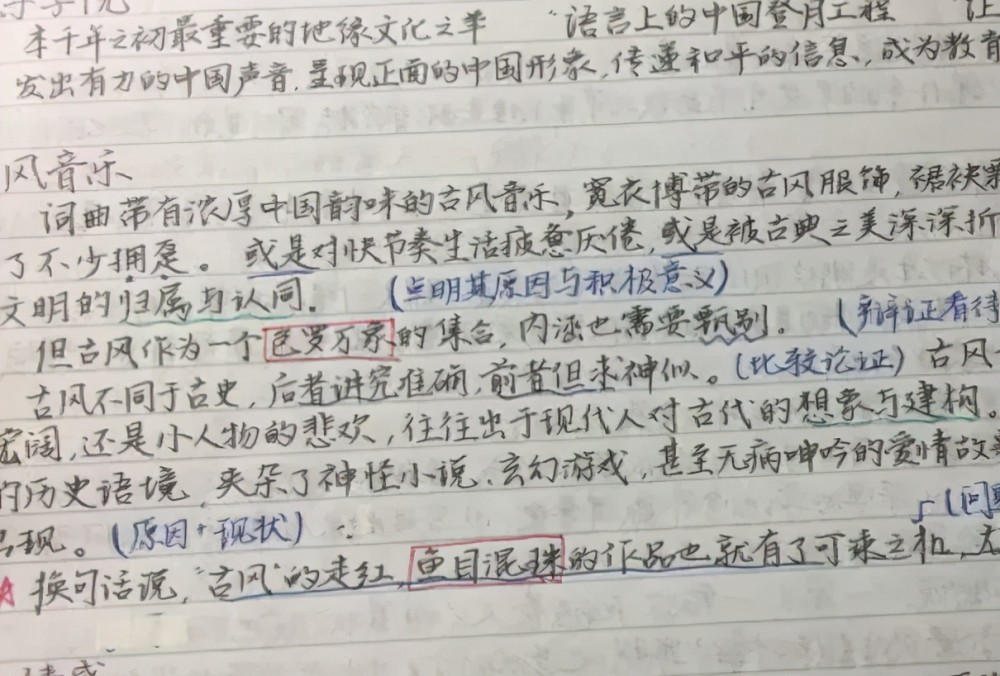 本千年之初最重要的地缘文化之举 “语言上的中国登月工程 让
发出有力的中国声音,呈现正面的中国形象,传递和平的信息,成为教育
风音乐
词曲带有浓厚中国韵味的古风音乐,宽衣博带的古风服饰,裙袂
了不少拥趸。或是对快节奏生活疲惫厌倦,或是被古典之美深深折
文明的归属与认同。(点明其原因与积极意义)
但古风作为一个包罗万象的集合,内涵也需要甄别。(辩证看待
古风不同于古史,后者讲究准确,前者但求神似。(比较论证)古风
宏阔,还是小人物的悲欢,往往出于现代人对古代的想象与建构。
的历史语境,夹杂了神怪小说、玄幻游戏,甚至无病呻吟的爱情故
现。(原因+现状) (回
换句话说,“古风”的走红,鱼目混珠的作品也就有了可乘之机,